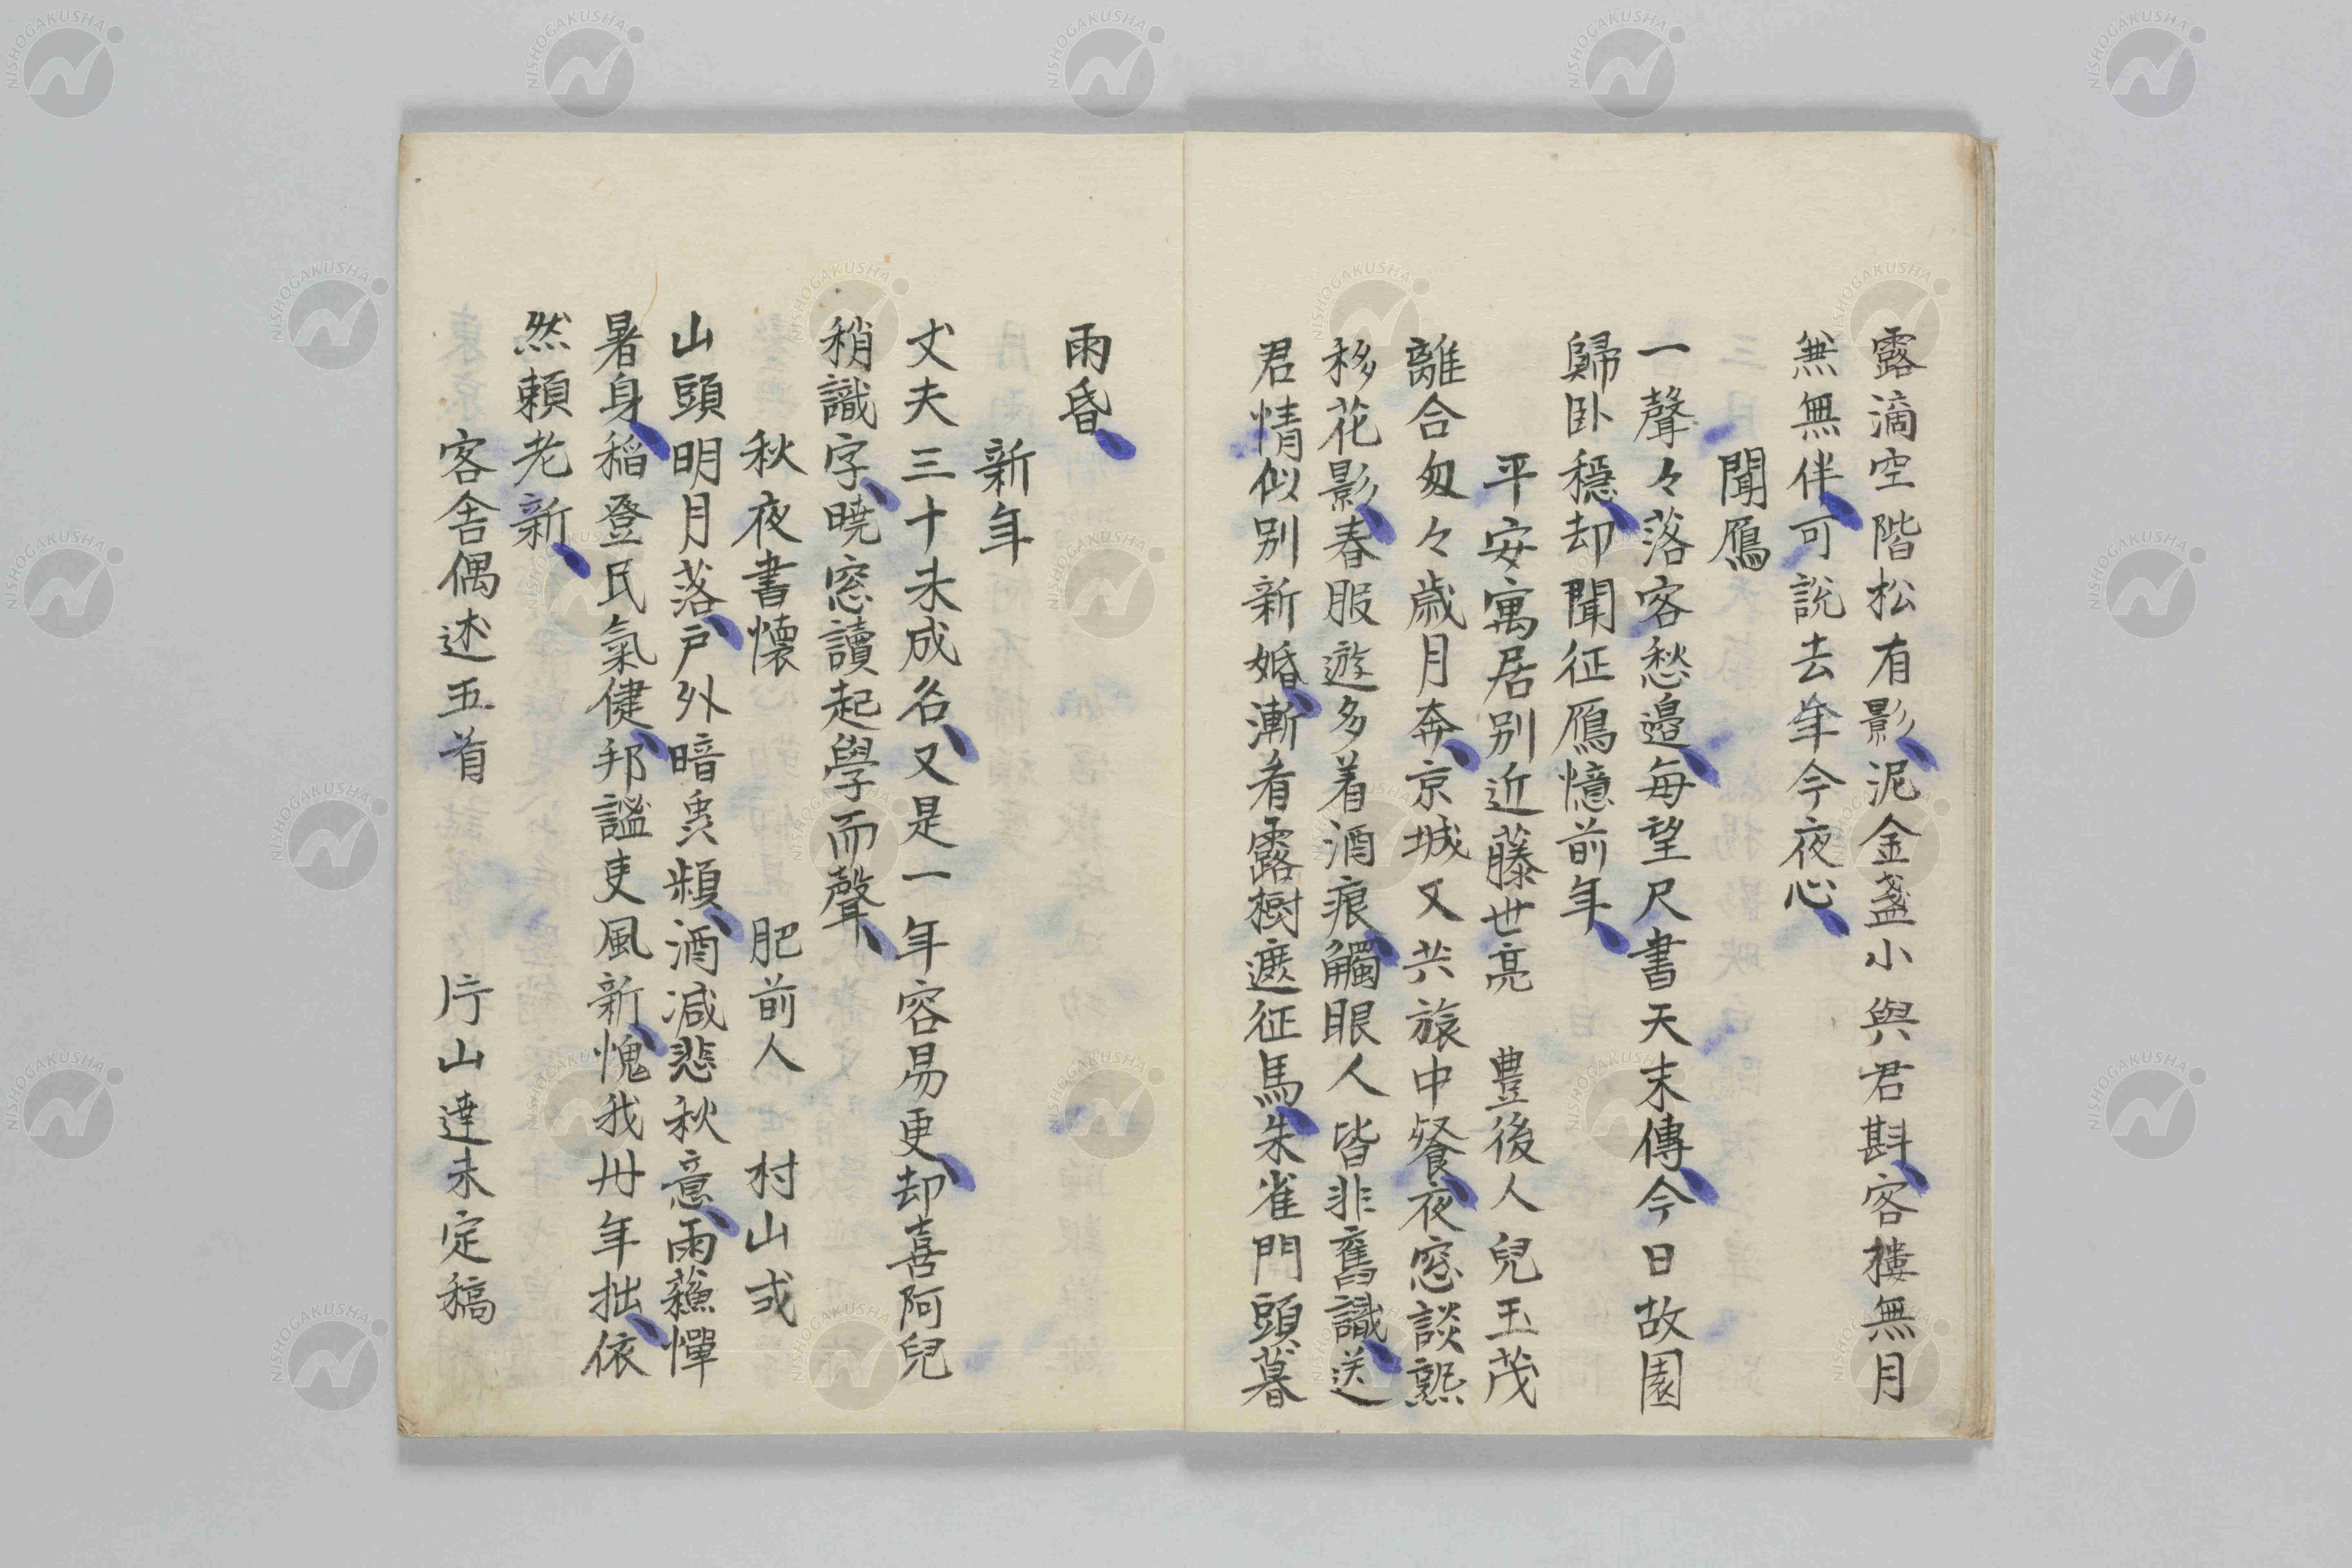 露滴空階松有影泥金盞小與君斟客樓無月
無無伴可說去年今夜心
聞鴈
一聲々落客愁邉每望尺書天末傳今日故園
歸卧穩却聞征鴈憶前年
平安寓居别近藤世亮 豊後人兒玉茂
離合匆々歳月奔京城又共旅中餐夜窓談熟
移花影春服遊多着酒痕觸眼人皆非舊識送
君情似别新婚漸看露樹遮征馬朱雀門頭暮
雨昏
新年
丈夫三十未成名又是一年容易更却喜阿兒
稍識字曉窓讀起學而聲
秋夜書懷 肥前人 村山或
山頭明月落戸外暗蛩頻酒减悲秋意雨蘓憚
暑身稲登民氣健邦謐吏風新愧我丗年拙依
然頼老新
客舎偶述五首 片山達未定稿
NISHOGAKUSHA